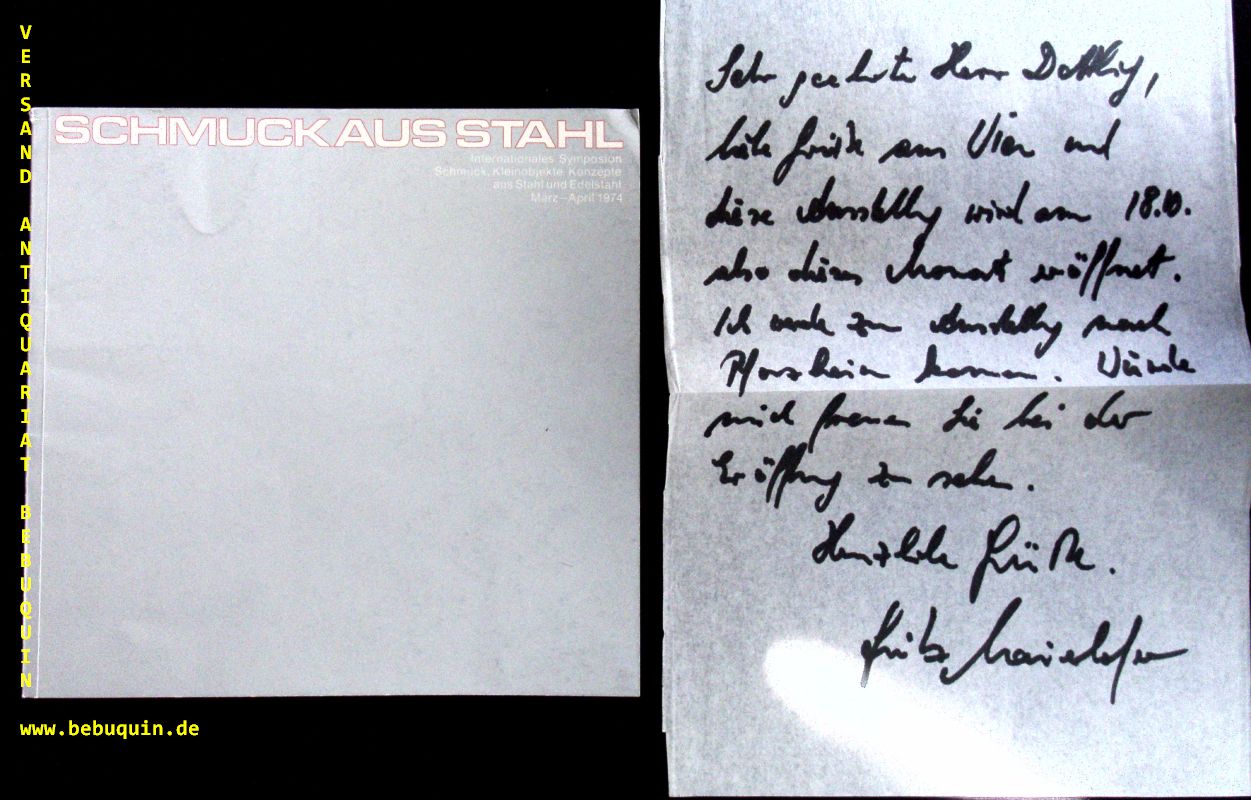 VERSAND ANTIQUARIAT BEBUQUIN
SCHMUCK AUS STAHL
Internationales Symposion
Schmuck, Kleinobjekte, Konzepte
aus Stahl und Edelstahl
März–April 1974
www.bebuquin.de
Sehr geehrter Herr
liebe Grüße aus Wien und
diese Ausstellung wird am 18.10.
also dieses Monat eröffnet.
Ich werde zur Ausstellung nach
Pforzheim kommen. Würde
mich freuen Sie bei der
Eröffnung zu sehen.
Herzliche Grüße.
Fritz Maierhofer